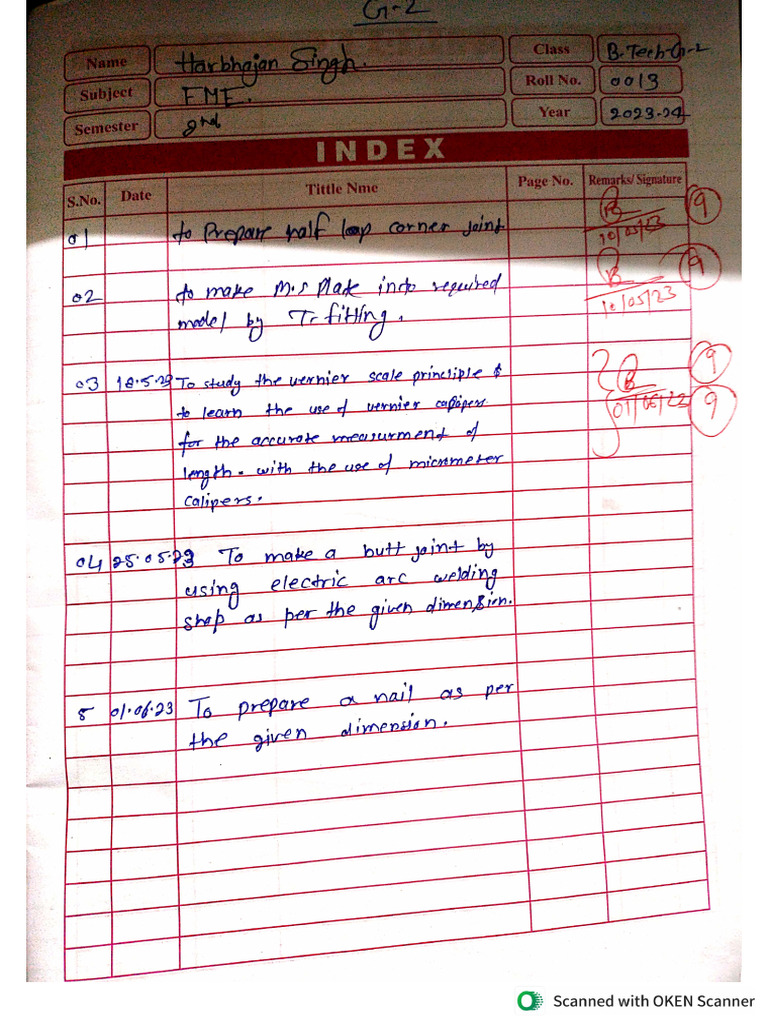 G-2
Name Harbhajan Singh. Class B.Tech-G-2
Subject FME. Roll No. 0013
Semester 2nd Year 2023-24
INDEX
S.No. Date Tittle Nme Page No. Remarks/ Signature
01 to Prepare half loap corner joint 9
10/05/23
02 to make M.S Plate into required 9
model by T. fitting. 10/05/23
03 18.5.23 To study the vernier scale principle & 9
to learn the use of vernier calipers 01/06/23 9
for the accurate measurment of
length. with the use of micrometer
calipers.
04 25.05.23 To make a butt joint by
using electric arc welding
shop as per the given dimension.
5 01.06.23 To prepare a nail as per
the given dimension.
Scanned with OKEN Scanner